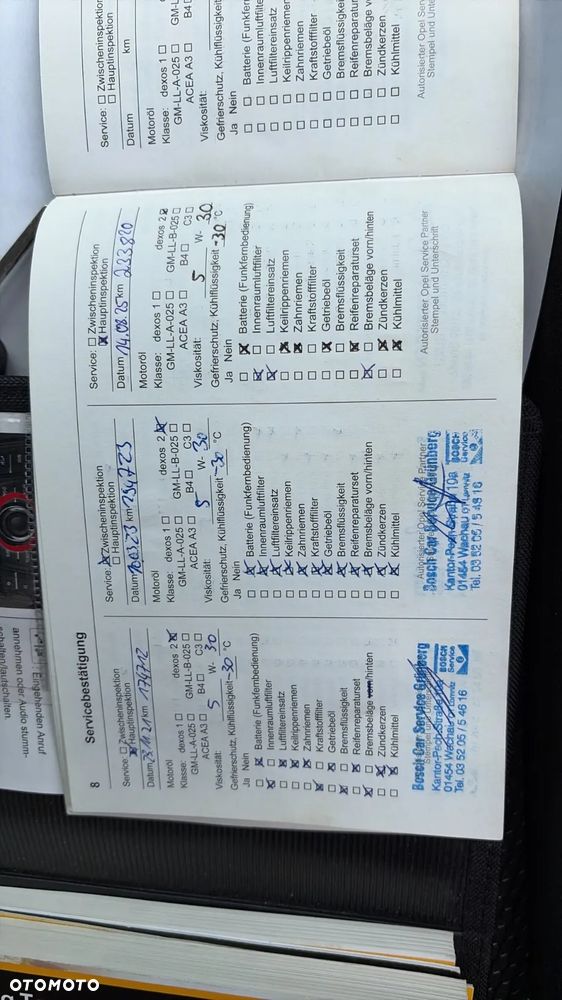 8
Servicebestätigung
Service: ☐ Zwischeninspektion
☒ Hauptinspektion
Datum 23.11.21 km
Motoröl
Klasse: dexos 1 ☐ dexos 2 ☒
GM-LL-A-025 ☐ GM-LL-B-025 ☐
ACEA A3 ☐ B4 ☐ C3 ☐
Viskosität: 5 W- 30
Gefrierschutz, Kühlflüssigkeit -30 °C
Ja Nein
☐ ☒ Batterie (Funkfernbedienung)
☒ ☐ Innenraumluftfilter
☐ ☒ Luftfiltereinsatz
☐ ☒ Keilrippenriemen
☐ ☒ Zahnriemen
☒ ☐ Kraftstofffilter
☐ ☒ Getriebeöl
☒ ☐ Bremsflüssigkeit
☐ ☒ Reifenreparaturset
☒ ☐ Bremsbeläge vorn/hinten
☐ ☒ Zündkerzen
☐ ☒ Kühlmittel
Bosch Car Service Grünberg
Kantor-Pech-Straße 10a
01454 Wachau OT Lomnitz
Tel. 03 52 05 / 5 46 16
BOSCH
Service
Service: ☒ Zwischeninspektion
☐ Hauptinspektion
Datum km
Motoröl
Klasse: dexos 1 ☐ dexos 2 ☒
GM-LL-A-025 ☐ GM-LL-B-025 ☐
ACEA A3 ☐ B4 ☐ C3 ☐
Viskosität: 5 W- 30
Gefrierschutz, Kühlflüssigkeit -30 °C
Ja Nein
☐ ☒ Batterie (Funkfernbedienung)
☐ ☒ Innenraumluftfilter
☐ ☒ Luftfiltereinsatz
☐ ☒ Keilrippenriemen
☐ ☒ Zahnriemen
☐ ☒ Kraftstofffilter
☐ ☒ Getriebeöl
☐ ☒ Bremsflüssigkeit
☐ ☒ Reifenreparaturset
☐ ☒ Bremsbeläge vorn/hinten
☐ ☒ Zündkerzen
☐ ☒ Kühlmittel
Autorisierter Opel Service Partner
Bosch Car Service Grünberg
Kantor-Pech-Straße 10a
01454 Wachau OT Lomnitz
Tel. 03 52 05 / 5 46 16
BOSCH
Service
Service: ☐ Zwischeninspektion
☒ Hauptinspektion
Datum 14.08.25 km 223820
Motoröl
Klasse: dexos 1 ☐ dexos 2 ☒
GM-LL-A-025 ☐ GM-LL-B-025 ☐
ACEA A3 ☐ B4 ☐ C3 ☐
Viskosität: 5 W- 30
Gefrierschutz, Kühlflüssigkeit -30 °C
Ja Nein
☐ ☒ Batterie (Funkfernbedienung)
☒ ☐ Innenraumluftfilter
☒ ☐ Luftfiltereinsatz
☐ ☒ Keilrippenriemen
☐ ☒ Zahnriemen
☐ ☐ Kraftstofffilter
☐ ☒ Getriebeöl
☐ ☐ Bremsflüssigkeit
☐ ☒ Reifenreparaturset
☒ ☐ Bremsbeläge vorn/hinten
☐ ☒ Zündkerzen
☐ ☒ Kühlmittel
Autorisierter Opel Service Partner
Stempel und Unterschrift
Service: ☐ Zwischeninspektion
☐ Hauptinspektion
Datum km
Motoröl
Klasse: dexos 1 ☐
GM-LL-A-025 ☐
ACEA A3 ☐ B4 ☐
Viskosität:
Gefrierschutz, Kühlflüssigkeit
Ja Nein
☐ ☐ Batterie (Funkfern
☐ ☐ Innenraumluftfilter
☐ ☐ Luftfiltereinsatz
☐ ☐ Keilrippenriemen
☐ ☐ Zahnriemen
☐ ☐ Kraftstofffilter
☐ ☐ Getriebeöl
☐ ☐ Bremsflüssigkeit
☐ ☐ Reifenreparaturset
☐ ☐ Bremsbeläge vorn
☐ ☐ Zündkerzen
☐ ☐ Kühlmittel
Autorisierter Opel Serv
Stempel und Unter
Eingehenden Anruf
annehmen oder Audio stumm-
schalten/lautschalten.
OTOMOTO